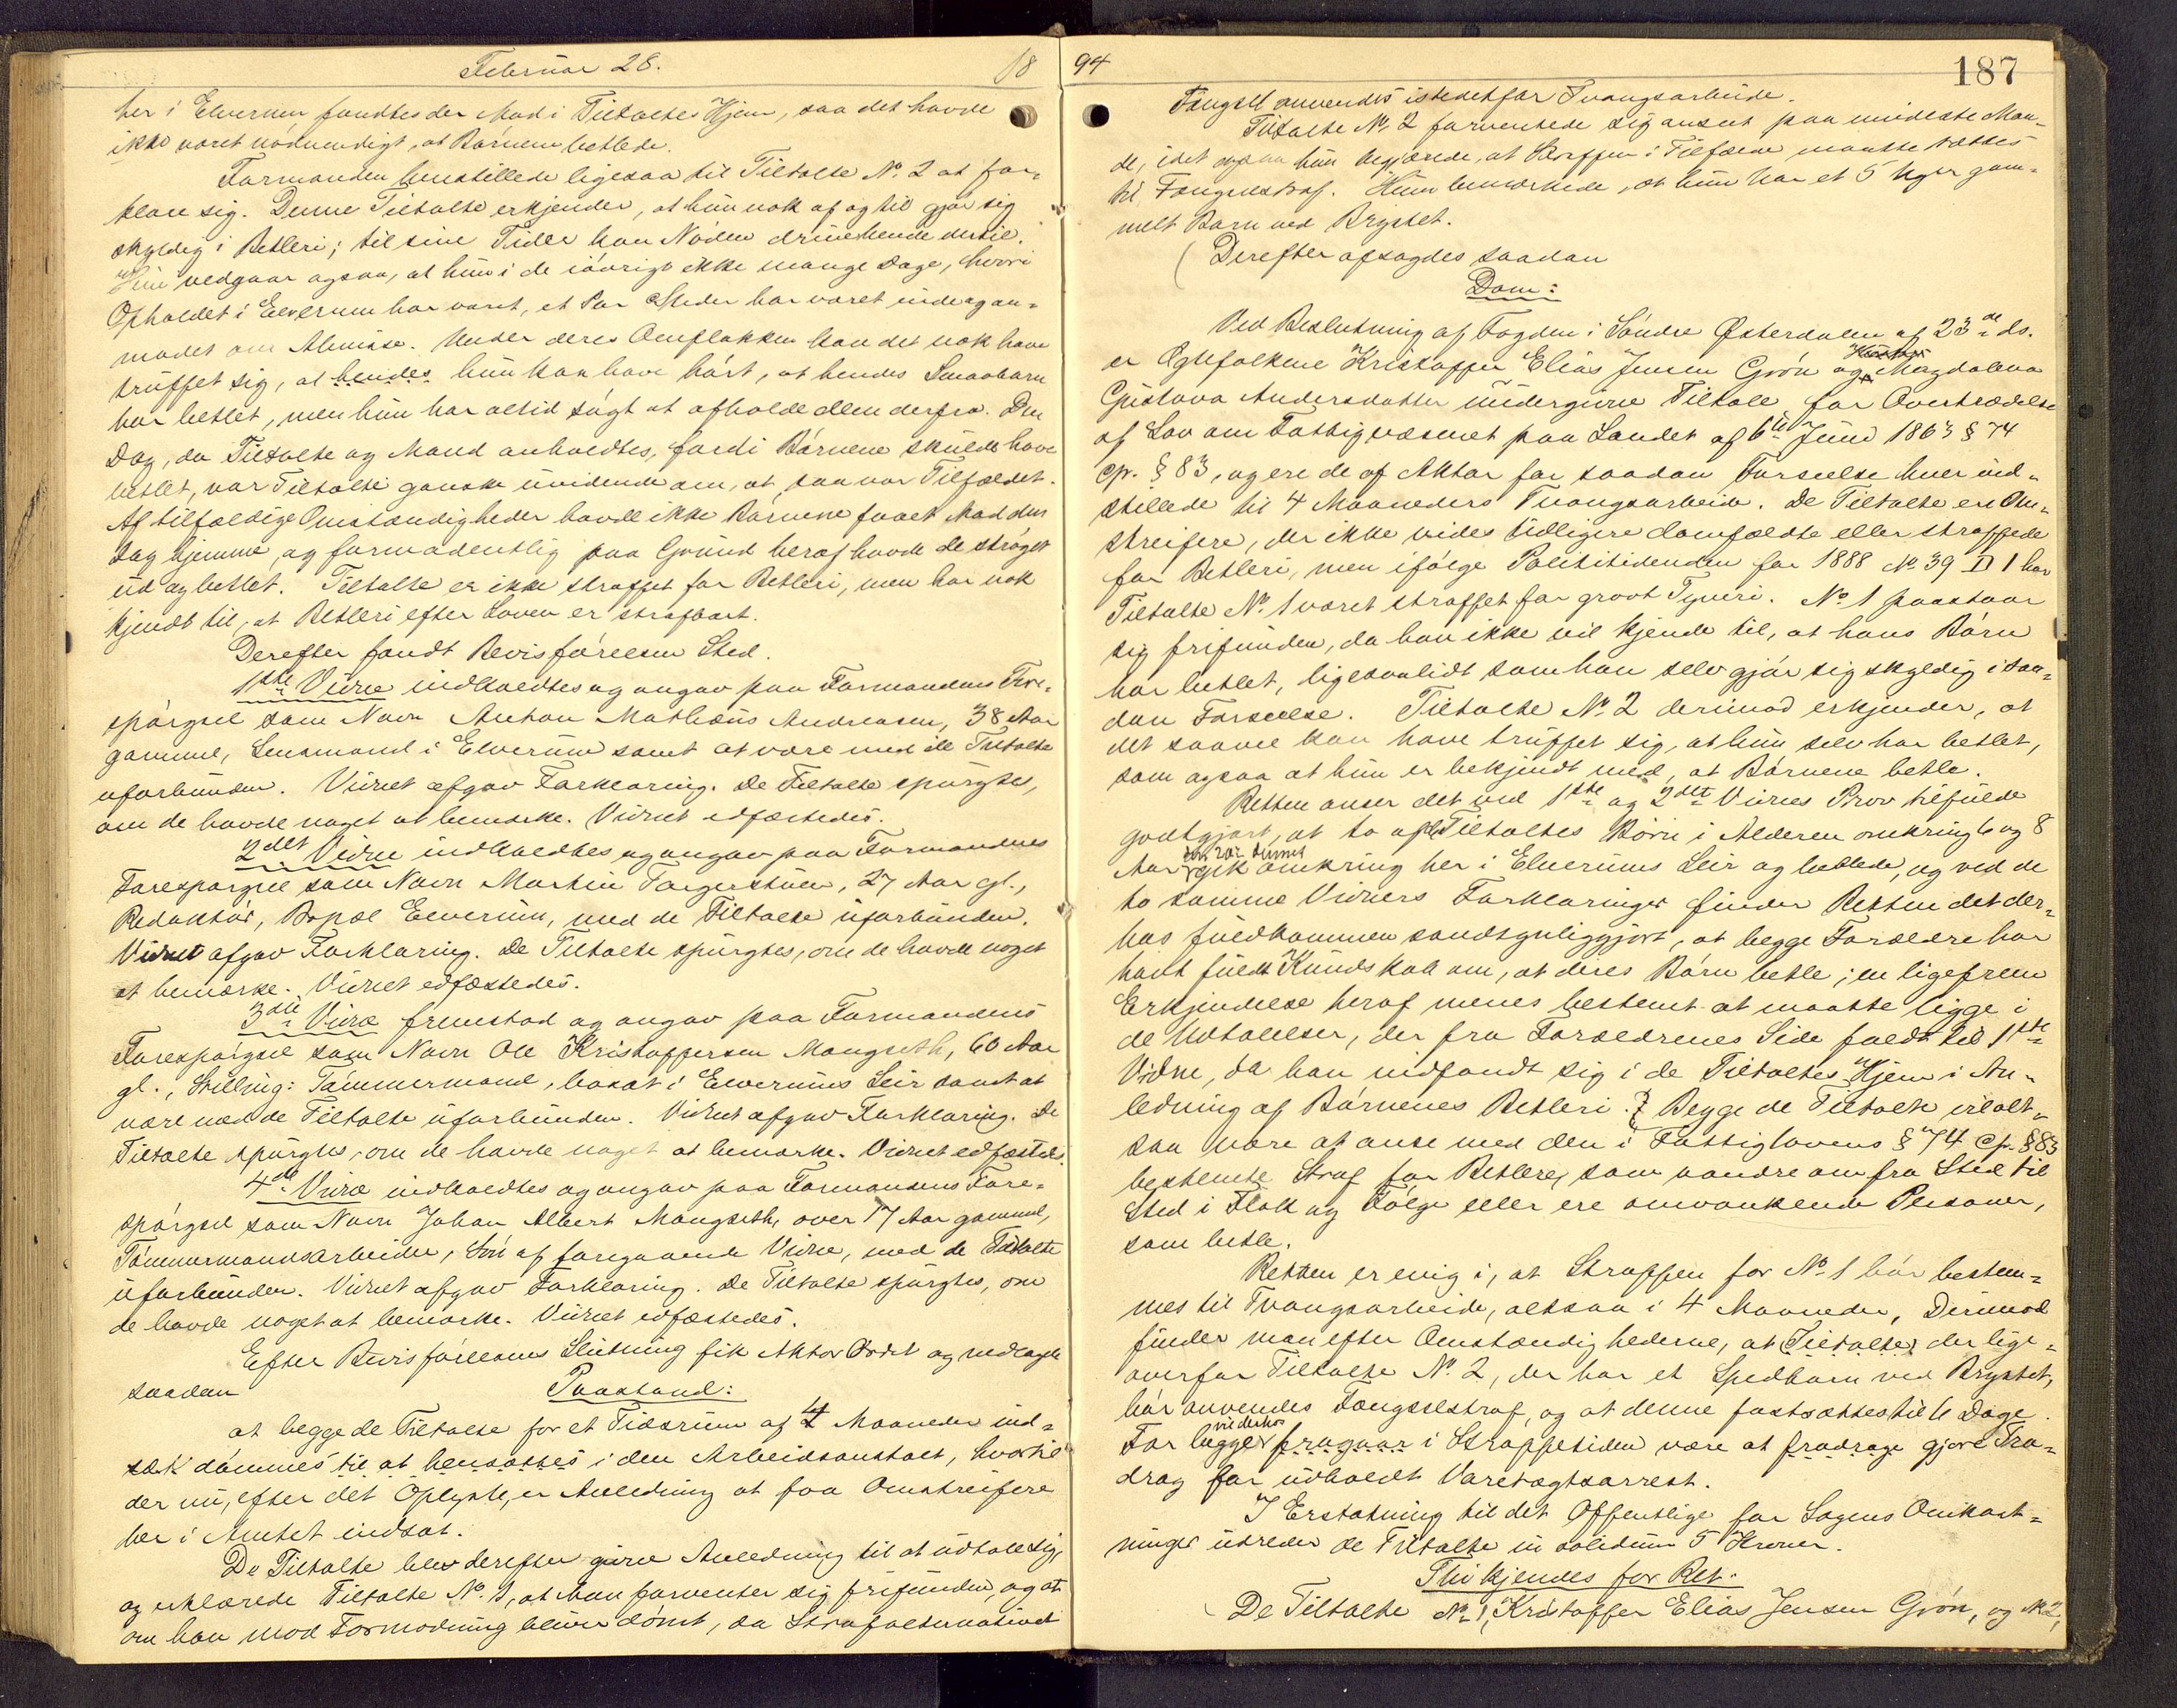 Februar 28. 18
her i Elverum fandtes der Mad i Tiltaltes Hjem, saa det havde
ikke været nødvendigt, at Børnene betlede.
Formanden henstillede ligesaa til Tiltalte No. 2 at for-
klare sig. Denne Tiltalte erkjender, at hun nok af og til gjør sig
skyldig i Betleri; til sine Tider kan Nøden drive hende dertil.
Hun vedgaar ogsaa, at hun i de iøvrigt ikke mange Dage, hvori
Opholdet i Elverum har varet, et Par Steder har været inde og an-
modet om Almisse. Under deres Omflakken kan det nok have
truffet sig, at hendes hun kan have hørt, at hendes Smaabørn
har betlet, men hun har altid søgt at afholde dem derfra. Den
Dag, da Tiltalte og Mand anholdtes, fordi Børnene skulde have
betlet, var Tiltalte ganske uvidende om, at saa var Tilfældet.
Af tilfældige Omstændigheder havde ikke Børnene faaet Mad den
Dag hjemme, og formodentlig paa Grund heraf havde de strøget
ud og betlet. Tiltalte er ikke straffet for Betleri, men har nok
kjendt til, at Betleri efter Loven er strafbart.
Derefter fandt Bevisførelsen Sted.
1ste Vidne indkaldtes og angav paa Formandens Fore-
spørgsel som Navn Anton Mathæus Andreasen, 38 Aar
gammel, Lensmand i Elverum samt at være med de Tiltalte
uforbunden. Vidnet afgav Forklaring. De Tiltalte spurgtes,
om de havde noget at bemærke. Vidnet edfæstedes.
2det Vidne indkaldtes og angav paa Formandens
Forespørgsel som Navn Martin Torgerstuen, 27 Aar gl.,
Redaktør, Bopæl Elverum, med de Tiltalte uforbunden.
Vidnet afgav Forklaring. De Tiltalte spurgtes, om de havde noget
at bemærke. Vidnet edfæstedes.
3die Vidne fremstod og angav paa Formandens
Forespørgsel som Navn Ole Kristoffersen Mangseth, 60 Aar
gl., Stilling: Tømmermand, bosat i Elverums Leir samt at
være med de Tiltalte uforbunden. Vidnet afgav Forklaring. De
Tiltalte spurgtes, om de havde noget at bemærke. Vidnet edfæstedes.
4de Vidne indkaldtes og angav paa Formandens Fore-
spørgsel som Navn Johan Albert Mangseth, over 17 Aar gammel,
Tømmermandsarbeider, Søn af foregaaende Vidne, med de Tiltalte
uforbunden. Vidnet afgav Forklaring. De Tiltalte spurgtes, om
de havde noget at bemærke. Vidnet edfæstedes.
Efter Bevisførelsens Slutning fik Aktor Ordet og nedlagde
saadan Paastand:
at begge de Tiltalte for et Tidsrum af 4 Maaneder ind-
sæt dømmes til at hensættes i den Arbeidsanstalt, hvortil
der nu, efter det Oplyste, er Anledning at faa Omstreifere
her i Amtet indsat.
De Tiltalte blev derefter given Anledning til at udtale sig,
og erklærede Tiltalte No. 1, at han forventer sig frifunden, og at
om han mod Formodning bliver dømt, da Strafalternativet
94 187
Fængsel anvendes istedetfor Tvangsarbeide.
Tiltalte No. 2 forventede sig anseet paa mildeste Maa-
de, idet ogsaa hun begjærede, at Straffen i Tilfælde maatte sættes
til Fængselsstraf. Hun bemærkede, at hun har et 5 Uger gam-
melt Barn ved Brystet.
(Derefter afsagdes saadan
Dom:
Ved Beslutning af Fogden i Søndre Østerdalen af 23de ds.
er Ægtefolkene Kristoffer Elias Jensen Grøn og Magdalena
Gustava Andersdatter undergivne Tiltale for Overtrædelse
af Lov om Fattigvæsenet paa Landet af 6te Juni 1863 § 74
cp. § 83, og ere de af Aktor for saadan Forseelse hver ind-
stillede til 4 Maaneders Tvangsarbeide. De Tiltalte ere Om-
streifere, der ikke vides tidligere domfældte eller straffede
for Betleri, men ifølge Politiitidenden for 1888 No. 39 D 1 har
Tiltalte No. 1 været straffet for grovt Tyveri. No. 1 paastaar
sig frifunden, da han ikke vil kjende til, at hans Børn
har betlet, ligesaalidt som han selv gjør sig skyldig i saa-
dan Forseelse. Tiltalte No. 2 derimod erkjender, at
det saavel kan have truffet sig, at hun selv har betlet,
som ogsaa at hun er bekjendt med, at Børnene betle.
Retten anser det ved 1ste og 2det Vidnes Prov tilfulde
godtgjort, at to af de Tiltaltes Børn i Alderen omkring 6 og 8
Aar gik omkring her i Elverums Leir og betlede, og ved de
to samme Vidners Forklaringer finder Retten det der-
hos fuldkommen sandsynliggjort, at begge Forældre har
havt fuld Kundskab om, at deres Børn betle; en ligefrem
Erkjendelse heraf menes bestemt at maatte ligge i
de Udtalelser, der fra Forældrenes Side faldt til 1ste
Vidne, da han indfandt sig i de Tiltaltes Hjem i An-
ledning af Børnenes Betleri. Begge de Tiltalte vil alt-
saa være at anse med den i Fattiglovens § 74 cp. § 83
bestemte Straf for Betlere, som vandre om fra Sted til
Sted i Flok og Følge eller ere omvankende Personer,
som betle.
Retten er enig i, at Straffen for No. 1 bør bestem-
mes til Tvangsarbeide, altsaa i 4 Maaneder, Derimod
finder man efter Omstændighederne, at Tiltalte der lige-
overfor Tiltalte No. 2, der har et Spedbarn ved Brystet,
bør anvendes Fængselsstraf, og at denne fastsættes til 6 Dage.
For begge vil derhos fragaar i Straffetiden være at fradrage gjøre Fra-
drag for udholdt Varetægtsarrest.
I Erstatning til det Offentlige for Sagens Omkost-
ninger udreder de Tiltalte in solidum 5 Kroner.
Thi kjendes for Ret:
De Tiltalte No. 1, Kristoffer Elias Jensen Grøn, og No. 2,